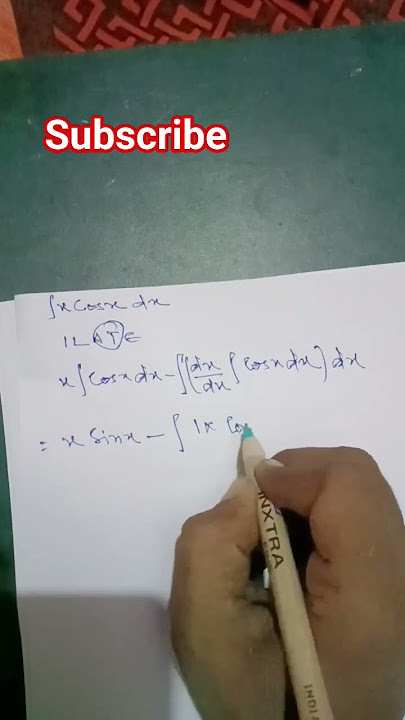 Subscribe
∫x Cosx dx
ILATE
x∫Cosx dx - ∫(dx/dx ∫Cosx dx) dx
= x Sinx - ∫ 1x Cos
NXTRA
INDI